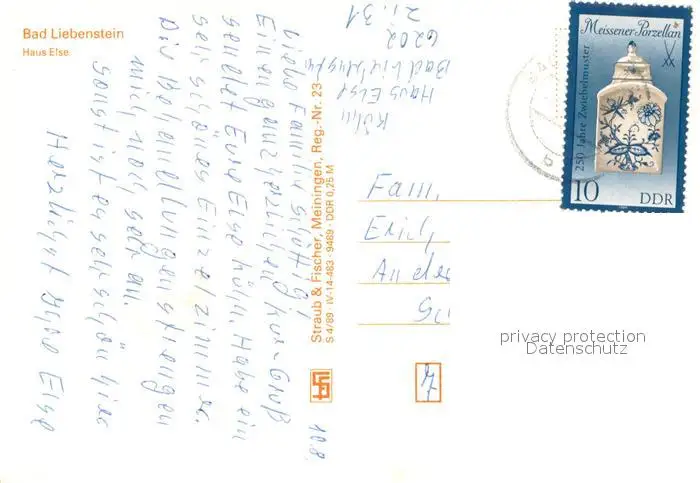 Bad Liebenstein
Haus Else
Köhn
Haus Else
Bad Liebenstein
6202
Zi. 31
10.8.
Liebe Familie
Einen ganz herzlichen Kur-Gruß
sendet Eure Else Köhn. Habe ein
sehr schönes Einzelzimmer.
Die Behandlungen strengen
mich noch sehr an.
Sonst ist es sehr schön hier
Herzlichst Eure Else
Straub & Fischer, Meiningen, Reg.-Nr. 23
S 4/89 · IV-14-483 · 9489 · DDR 0,25 M
Meissener Porzellan
250 Jahre Zwiebelmuster
10 DDR
Fam.
Erich
privacy protection
Datenschutz
7